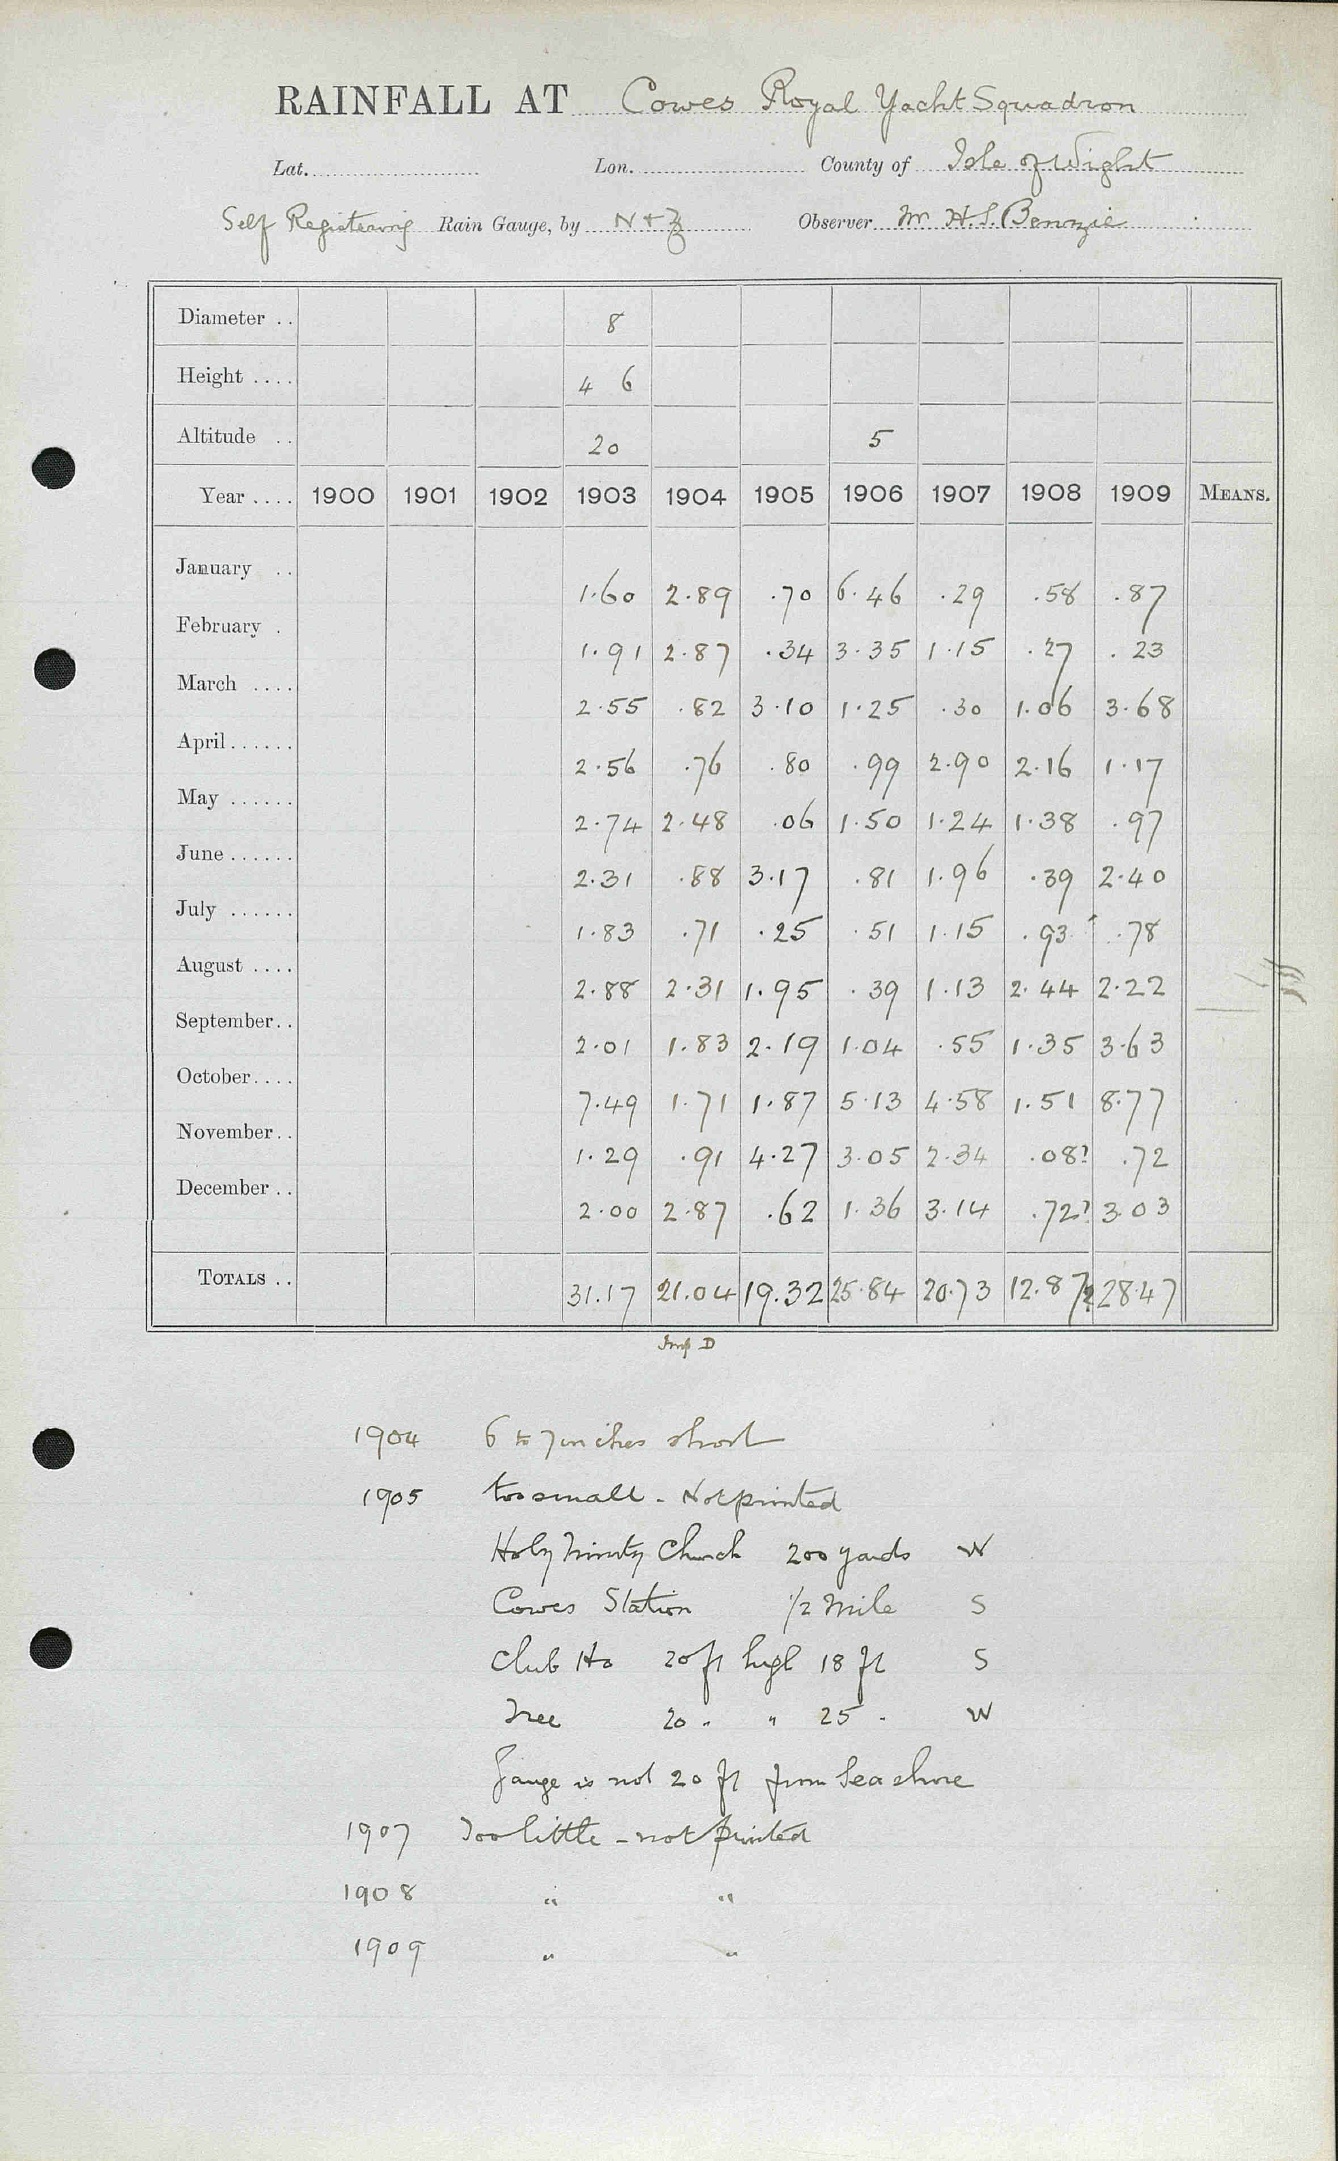 RAINFALL AT Cowes Royal Yacht Squadron
Lat. Lon. County of Isle of Wight
Self Registering Rain Gauge, by N & Z Observer Mr H. S. Benzie
Diameter . . 8
Height . . . . 4 6
Altitude . . 20 5
Year . . . . 1900 1901 1902 1903 1904 1905 1906 1907 1908 1909 MEANS.
January . . 1.60 2.89 .70 6.46 .29 .58 .87
February . 1.91 2.87 .34 3.35 1.15 .27 .23
March . . . . 2.55 .82 3.10 1.25 .30 1.06 3.68
April . . . . . . 2.56 .76 .80 .99 2.90 2.16 1.17
May . . . . . . 2.74 2.48 .06 1.50 1.24 1.38 .97
June . . . . . . 2.31 .88 3.17 .81 1.96 .39 2.40
July . . . . . . 1.83 .71 .25 .51 1.15 .93 .78
August . . . . 2.88 2.31 1.95 .39 1.13 2.44 2.22
September . . 2.01 1.83 2.19 1.04 .55 1.35 3.63
October . . . . 7.49 1.71 1.87 5.13 4.58 1.51 8.77
November . . 1.29 .91 4.27 3.05 2.34 .08? .72
December . . 2.00 2.87 .62 1.36 3.14 .72? 3.03
TOTALS . . 31.17 21.04 19.32 25.84 20.73 12.87? 28.47
Imp D
1904 6 to 7 inches short
1905 too small - Not printed
Holy Trinity Church 200 yards W
Cowes Station 1/2 mile S
Club Ho 20 ft high 18 ft S
Tree 20 " " 25 " W
Gauge is not 20 ft from Sea shore
1907 Too little - not printed
1908 " "
1909 " "